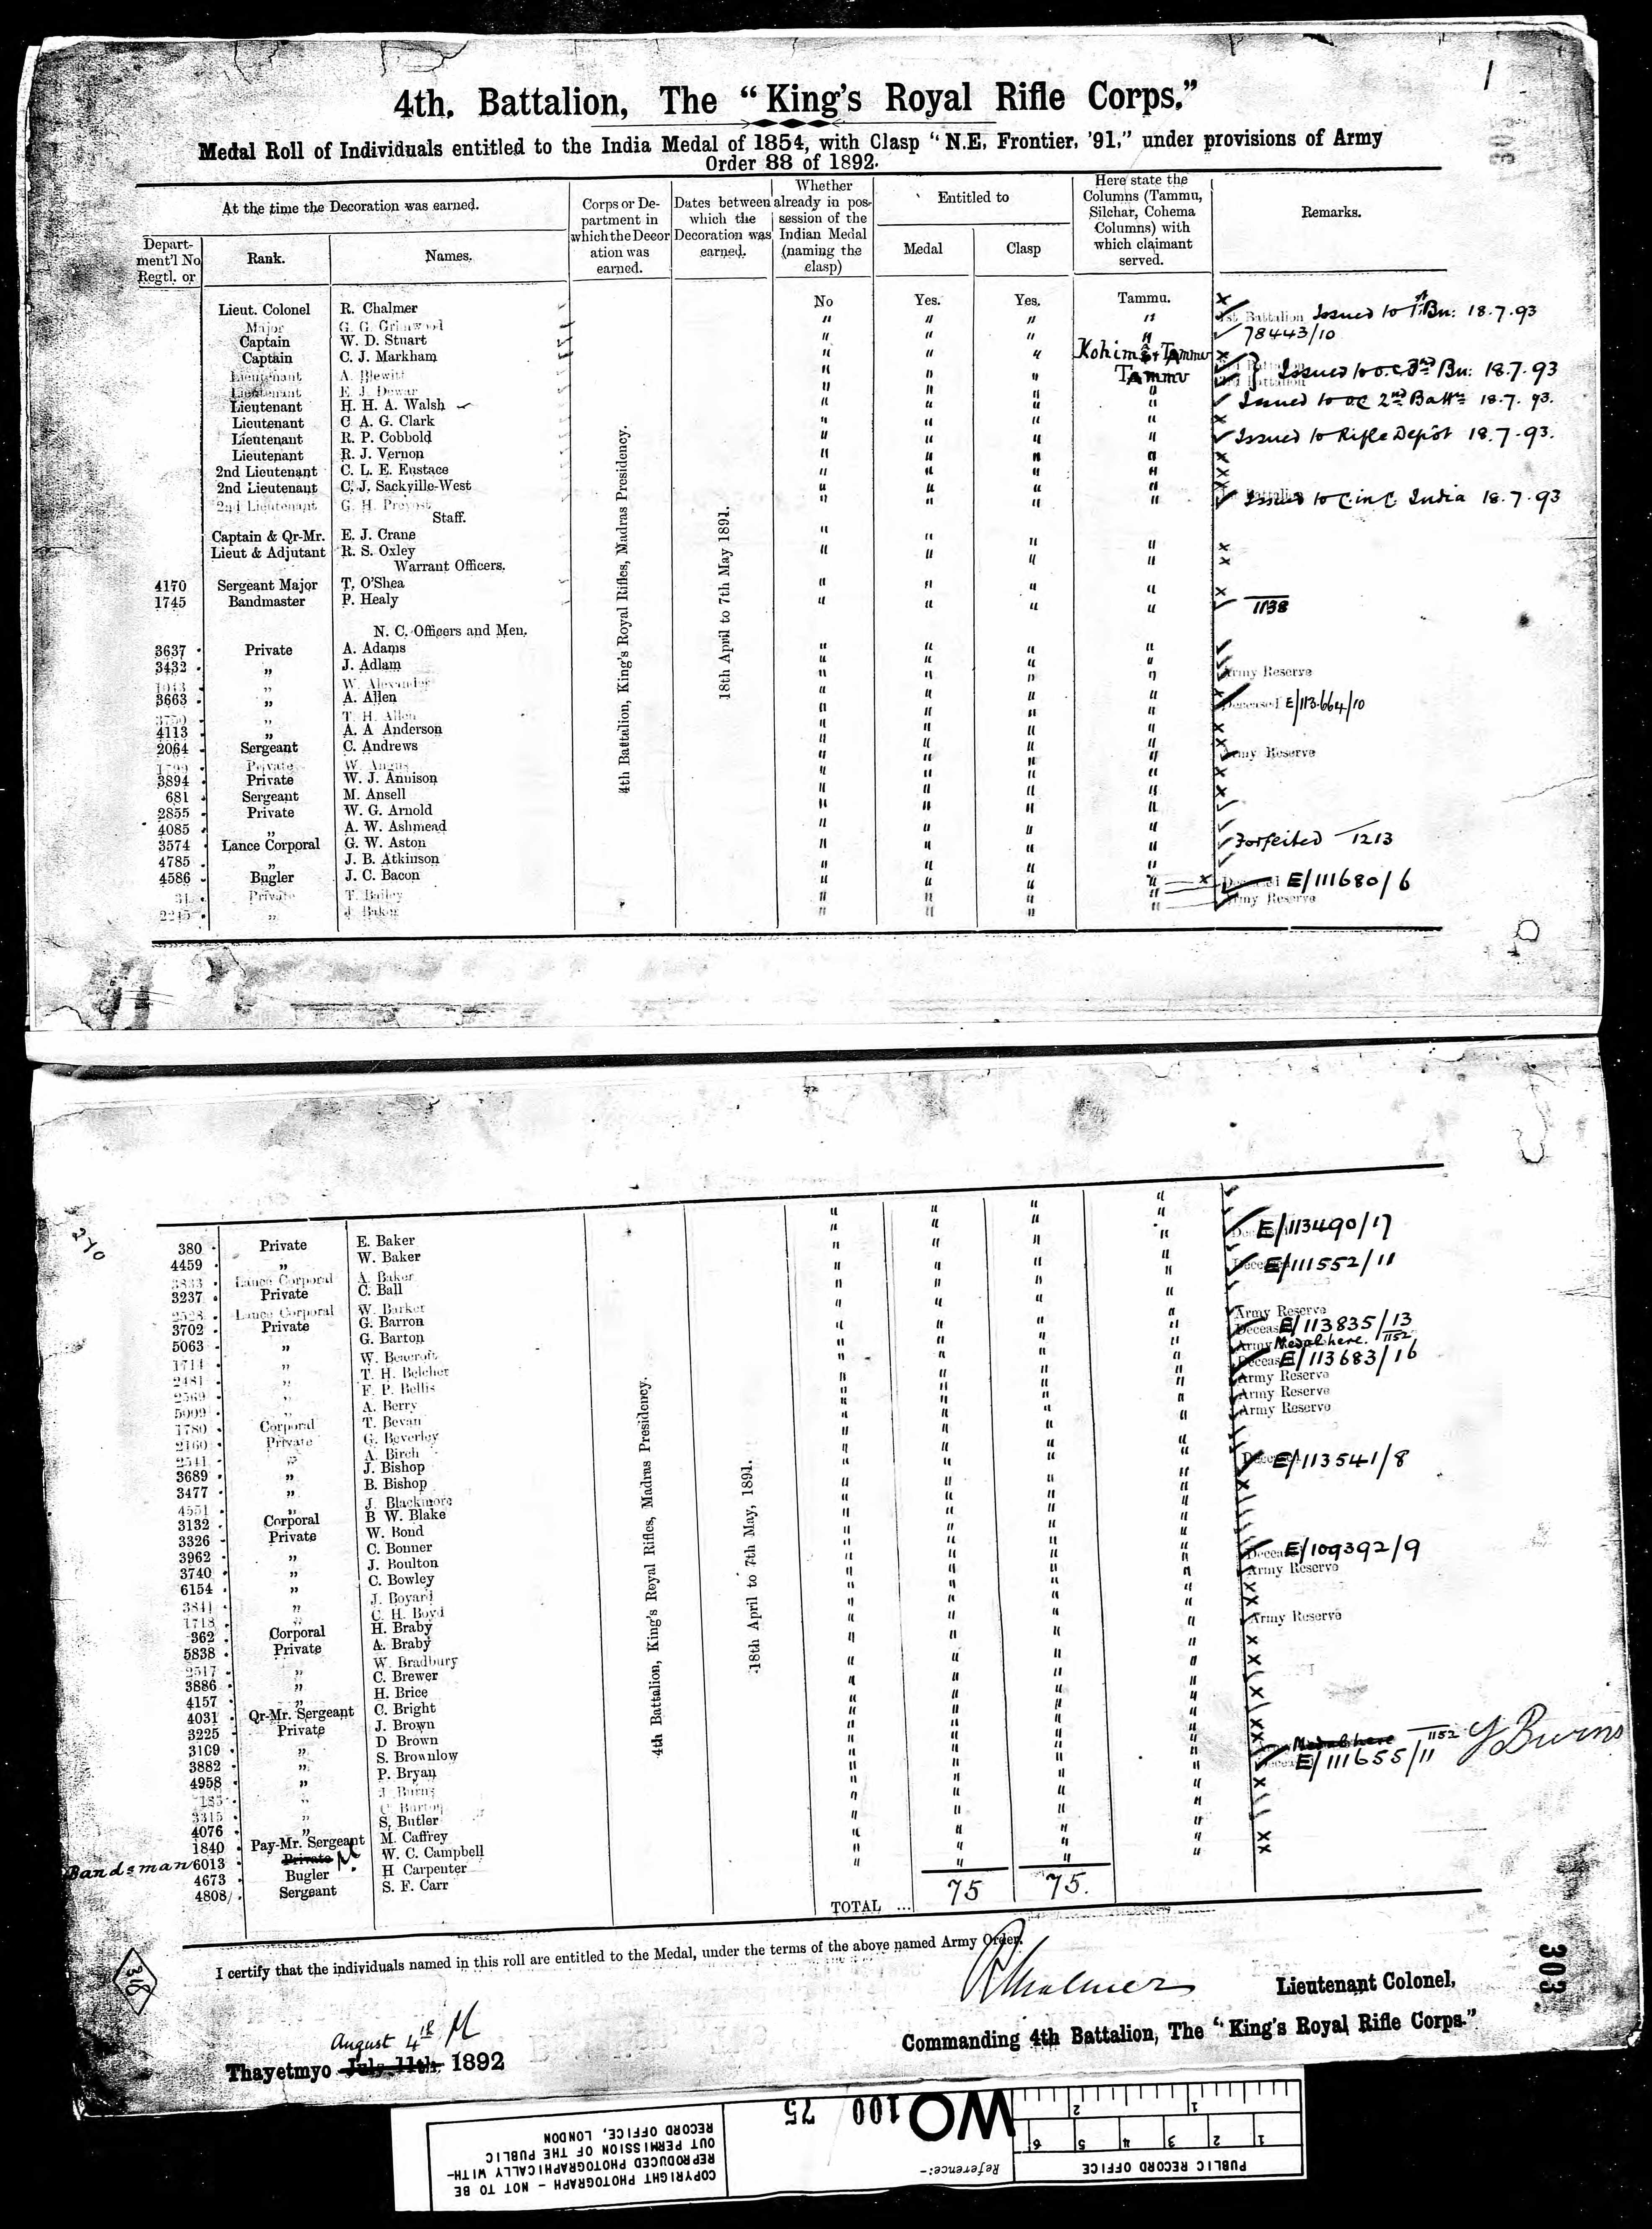 4th. Battalion, The "King's Royal Rifle Corps."
Medal Roll of Individuals entitled to the India Medal of 1854, with Clasp "N.E. Frontier, '91," under provisions of Army
Order 88 of 1892.
At the time the Decoration was earned.
Depart-
ment'l No
Regtl. or
Rank.
Names.
Corps or De-
partment in
which the Decor
ation was
earned.
Dates between
which the
Decoration was
earned.
Whether
already in pos-
session of the
Indian Medal
(naming the
clasp)
Entitled to
Medal
Clasp
Here state the
Columns (Tammu,
Silchar, Cohema
Columns) with
which claimant
served.
Remarks.
4th Battalion, King's Royal Rifles, Madras Presidency.
18th April to 7th May 1891.
Lieut. Colonel R. Chalmer No Yes. Yes. Tammu. x
Major G. G. Grimwood " " " " Battalion Issued to 1st Bn: 18.7.93
Captain W. D. Stuart " " " " 78443/10
Captain C. J. Markham " " " Kohima & Tammu x
Lieutenant A. Blewitt " " " Tammu Issued to o.c 3rd Bn: 18.7.93
Lieutenant E. J. Dewar " " " " Battalion
Lieutenant H. H. A. Walsh " " " " Issued to oc 2nd Battn 18.7.93.
Lieutenant C A. G. Clark " " " " x
Lieutenant R. P. Cobbold " " " " Issued to Rifle Depôt 18.7.93.
Lieutenant R. J. Vernon " " " " x
2nd Lieutenant C. L. E. Eustace " " " " x
2nd Lieutenant C. J. Sackville-West " " " " x
2nd Lieutenant G. H. Prevost " " " " Issued to C in C India 18.7.93
Staff.
Captain & Qr-Mr. E. J. Crane " " " " x
Lieut & Adjutant R. S. Oxley " " " " x
Warrant Officers.
4170 Sergeant Major T. O'Shea " " " " x
1745 Bandmaster P. Healy " " " " 1138
N. C. Officers and Men.
3637 Private A. Adams " " " "
3432 " J. Adlam " " " "
W. Alexander " " " " Army Reserve
3663 " A. Allen " " " "
3750 " T. H. Allen " " " " Deceased E/113.664/10
4113 " A. A Anderson " " " " x
2064 Sergeant C. Andrews " " " " x
1799 Private W. Angus " " " " Army Reserve
3894 Private W. J. Annison " " " " x
681 Sergeant M. Ansell " " " " x
2855 Private W. G. Arnold " " " "
4085 " A. W. Ashmead " " " "
3574 Lance Corporal G. W. Aston " " " " Forfeited 1213
4785 " J. B. Atkinson " " " "
4586 Bugler J. C. Bacon " " " " x
31 Private T. Bailey " " " " Deceased E/111680/6
2245 " J. Baker " " " " Army Reserve
270
4th Battalion, King's Royal Rifles, Madras Presidency.
18th April to 7th May, 1891.
380 Private E. Baker
4459 " W. Baker
3833 Lance Corporal A. Baker E/113490/17
3237 Private C. Ball
2528 Lance Corporal W. Barker Deceased E/111552/11
3702 Private G. Barron
5063 " G. Barton
1714 " W. Beacroft Army Reserve
2481 " T. H. Belcher Deceased E/113835/13
2569 " F. P. Bellis Army Medal here. 1152
5009 " A. Berry Deceased E/113683/16
1780 Corporal T. Bevan Army Reserve
2160 Private G. Beverley Army Reserve
2541 " A. Birch Army Reserve
3689 " J. Bishop
3477 " B. Bishop
4551 " J. Blackmore Deceased E/113541/8
3132 Corporal B W. Blake
3326 Private W. Bond
3962 " C. Bonner
3740 " J. Boulton
6154 " C. Bowley
3841 " J. Boyard Deceased E/109392/9
1718 " C. H. Boyd Army Reserve
362 Corporal H. Braby
5838 Private A. Braby
2517 " W. Bradbury Army Reserve
3886 " C. Brewer
4157 " H. Brice
4031 Qr-Mr. Sergeant C. Bright
3225 Private J. Brown
3169 " D Brown
3882 " S. Brownlow
4958 " P. Bryan
185 " J. Burns Medal here 1152 J Burns
3315 " C. Burton E/111655/11
4076 " S. Butler
1840 Pay-Mr. Sergeant M. Caffrey
Bandsman 6013 Private W. C. Campbell
4673 Bugler H Carpenter
4808 Sergeant S. F. Carr
TOTAL ... 75 75.
I certify that the individuals named in this roll are entitled to the Medal, under the terms of the above named Army Order.
R Chalmer
Lieutenant Colonel,
Commanding 4th Battalion, The "King's Royal Rifle Corps."
August 4th
Thayetmyo July 11th, 1892
303
PUBLIC RECORD OFFICE
1 2 3 4 5 6
1 2
Reference:-
WO 100 75
COPYRIGHT PHOTOGRAPH - NOT TO BE
REPRODUCED PHOTOGRAPHICALLY WITH-
OUT PERMISSION OF THE PUBLIC
RECORD OFFICE, LONDON